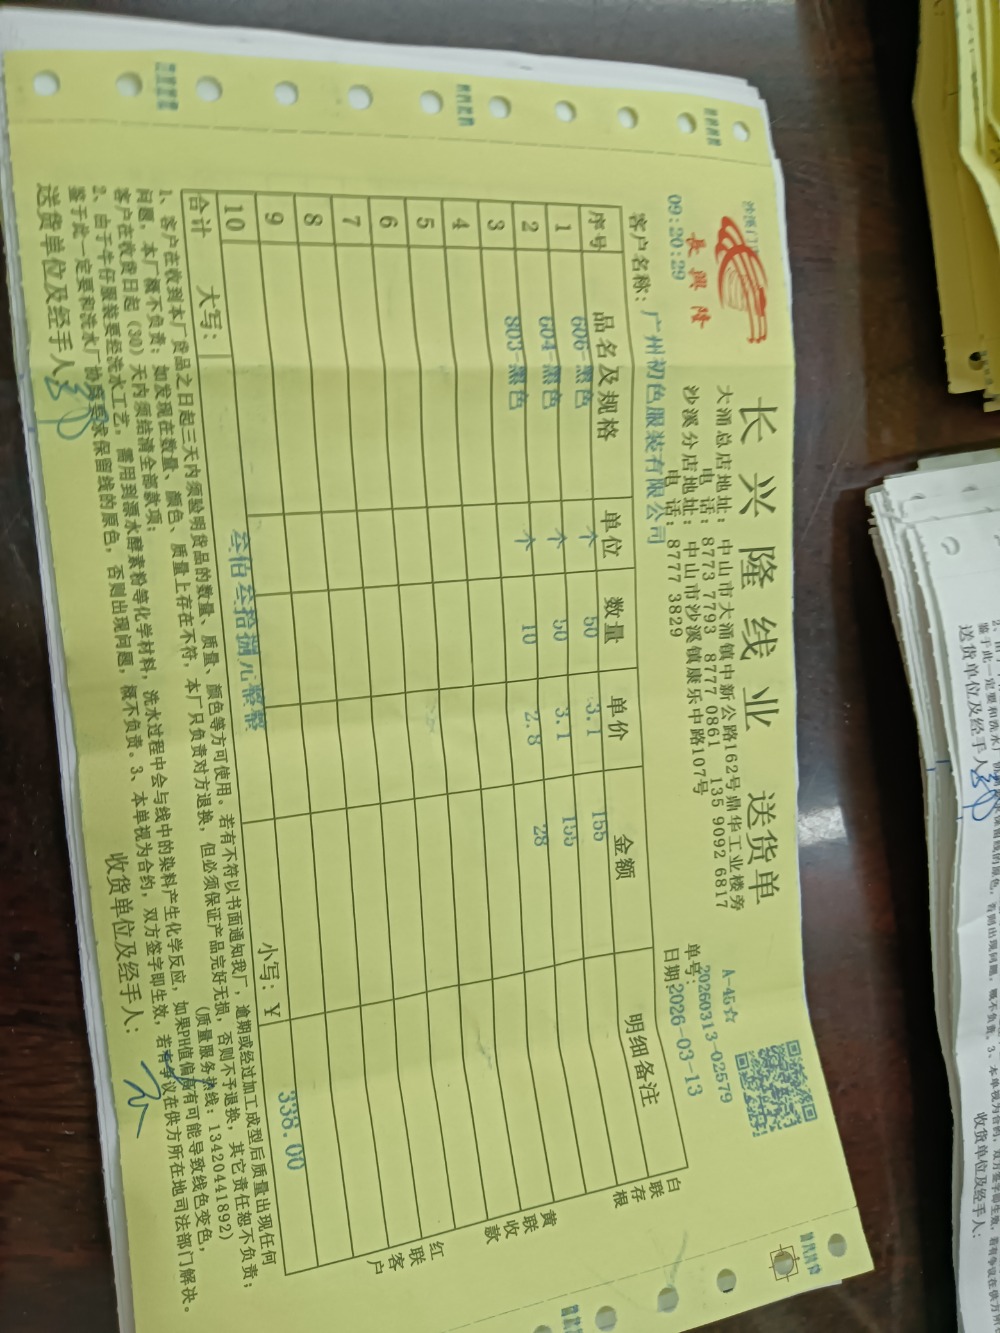 長興隆
09:20:29
长兴隆线业 送货单
大涌总店地址：中山市大涌镇中新公路162号鼎华工业楼旁
电话：8773 7793 8777 0861 135 9092 6817
沙溪分店地址：中山市沙溪镇康乐中路107号
电话：8777 3829
A-45☆
单号：20260313-02579
日期：2026-03-13
客户名称：广州初色服装有限公司
序号 品名及规格 单位 数量 单价 金额 明细备注
1 606-黑色 个 50 3.1 155
2 604-黑色 个 50 3.1 155
3 803-黑色 个 10 2.8 28
4
5
6
7
8
9
10
合计 大写： 叁佰叁拾捌元整整 小写：￥ 338.00
白联存根
黄联收款
红联客户
1、客户在收到本厂货品之日起三天内须验明货品的数量、质量、颜色等方可使用。若有不符以书面通知我厂，逾期或经过加工成型后质量出现任何
问题，本厂概不负责；如发现在数量、颜色、质量上存在不符，本厂只负责对方退换，但必须保证产品完好无损，否则不予退换，其它责任恕不负责；
客户在收货日起（30）天内须结清全部款项； （质量服务热线：13420441892）
2、由于牛仔服装要经洗水工艺，需用到漂水酵素粉等化学材料，洗水过程中会与线中的染料产生化学反应，如果PH值偏高有可能导致线色变色，
鉴于此一定要和洗水厂协商要求保留线的原色，否则出现问题，概不负责。3、本单视为合约，双方签字即生效，若有争议在供方所在地司法部门解决。
送货单位及经手人： 收货单位及经手人：
送货单位及经手人
收货单位及经手人：